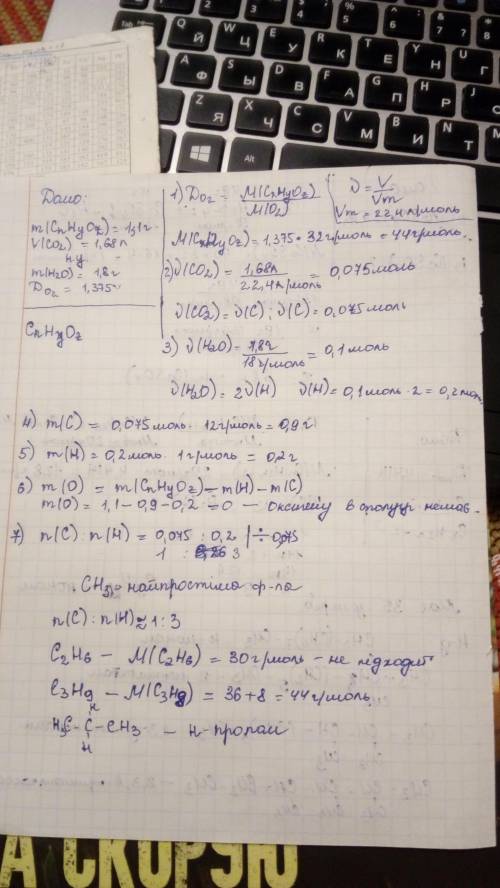 Дано:
m(CnHyOz)=1,1г
V(CO2)=1,68л
н.у.
m(H2O)=1,8г
DO2=1,375
CnHyOz
1) DO2 = M(CnHyOz)/M(O2)
ν = V/Vm
Vm = 22,4л/моль
M(CnHyOz)=1,375·32г/моль=44г/моль.
2) ν(CO2)= 1,68л/22,4л/моль = 0,075моль
ν(CO2)=ν(C); ν(C)=0,075моль
3) ν(H2O)= 1,8г/18г/моль = 0,1моль
ν(H2O)=2ν(H) ν(H)=0,1моль·2=0,2моль
4) m(C) = 0,075моль · 12г/моль=0,9г
5) m(H)=0,2моль·1г/моль = 0,2г
6) m(O) = m(CnHyOz)-m(H)-m(C)
m(O)=1,1-0,9-0,2=0 - оксигену в
7) n(C):n(H)=0,075 : 0,2 |÷0,075
1 : 3
CH3 - найпростіша ф-ла
n(C):n(H)≈1:3
C2H6 - M(C2H6)=30г/моль - не підходит
C3H9 - M(C3H8)=36+8=44г/моль
H
H3C-C-CH3 - н-пропан
H
Q
Й
W
Ц
E
У
R
К
T
Е
Y
Н
U
Г
A
Ф
S
Ы
D
В
F
А
G
П
H
Р
Z
Я
X
Ч
C
С
V
М
B
И
N
Т
Alt
А СКОРУЮ